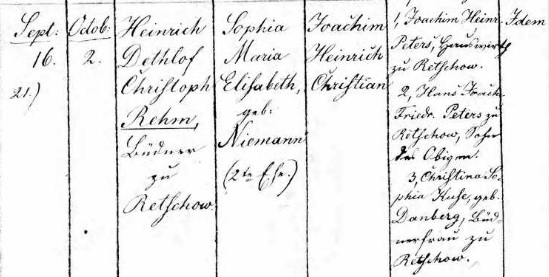 Sept.
16.
21.)
Octob:
2.
Heinrich
Dethlof
Christoph
Rehm,
Büdner
zu
Retschow.
Sophia
Maria
Elisabeth,
geb:
Niemann
(2te Ehe.)
Joachim
Heinrich
Christian
1, Joachim Heinr.
Peters, Hauswirth
zu Retschow.
2, Hans Joach.
Friedr. Peters zu
Retschow, Sohn
des Obigen.
3, Christina So-
phia Kuse, geb.
Danberg, Büd-
nerfrau zu
Retschow.
Idem